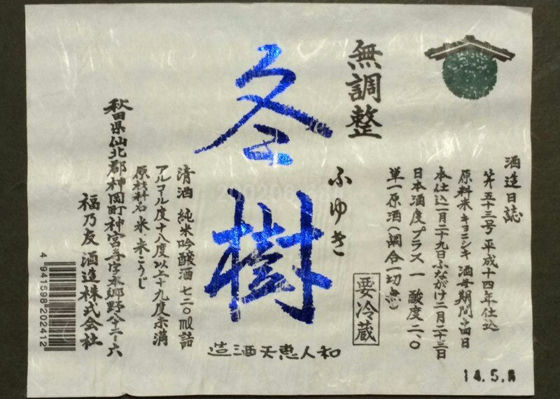 無調整
冬樹
ふゆき
要冷蔵
酒造日誌
第五十三号 平成十四年仕込
原料米 キヨニシキ 酒母期間 十四日
本仕込一月二十九日 ふながけ二月二十三日
日本酒度プラス一 酸度二、〇
単一原酒(調合一切無)
清酒 純米吟醸酒 七二〇ml詰
アルコール度十八度以上十九度未満
原材料名 米・米こうじ
秋田県仙北郡神岡町神宮寺字本郷野
福乃友酒造株式会社
和人恵天酒造
4941598202412
14.5.